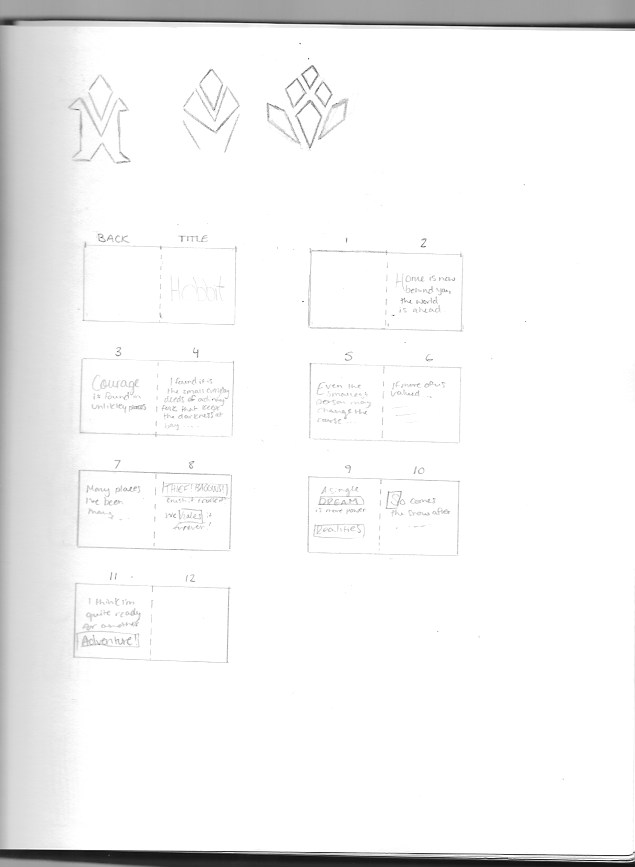 BACK TITLE
Hobbit
1 2
Home is now
behind you,
the world
is ahead
3 4
Courage
is found in
unlikely places
I found it is
the small everyday
deeds of ordinary
folk that keep
the darkness at
bay ....
5 6
Even the
smallest
person may
change the
course
If more of us
valued ..
7 8
Many places
I've been
Many
...
THIEF! BAGGINS!
hates it
forever!
9 10
A single
DREAM
is more power
Realities
So comes
the snow after
....
11 12
I think I'm
quite ready
for another
Adventure!